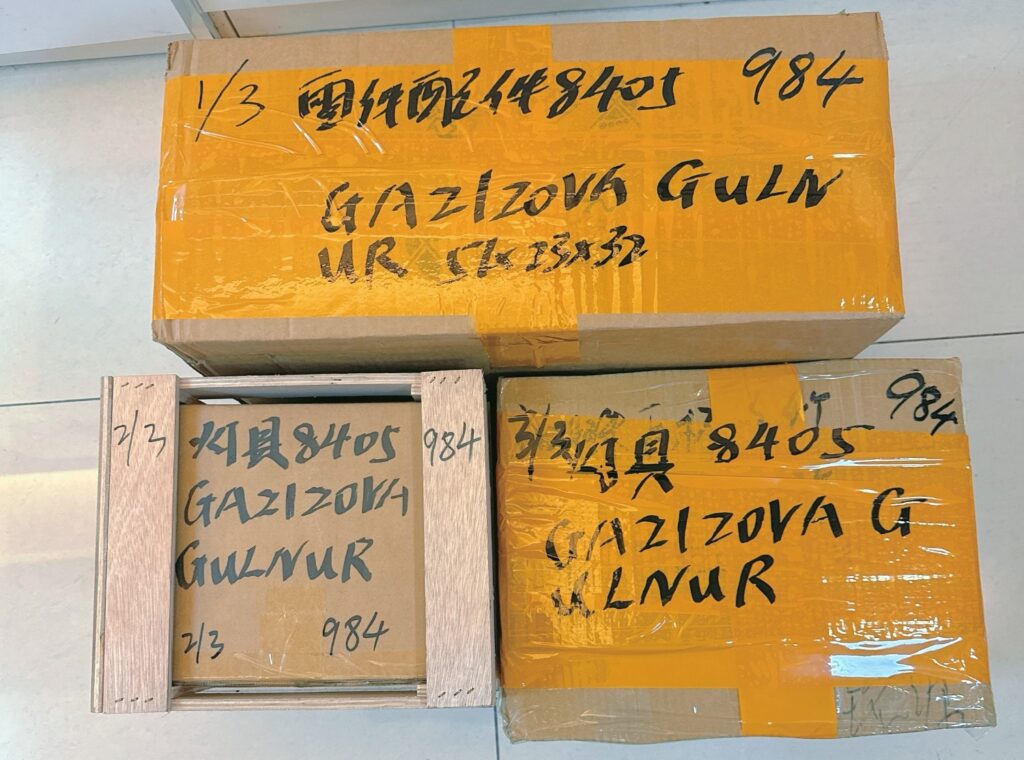 1/3 配件8405 984
GAZIZOVA GULN
UR
2/3 灯具8405 984
GAZIZOVA
GULNUR
2/3 984
984
3/3 灯具 8405
GAZIZOVA G
ULNUR